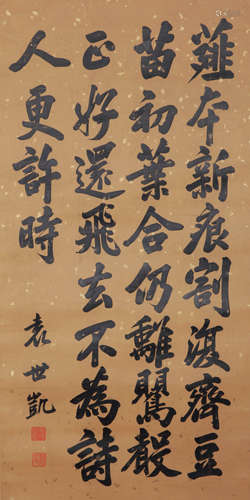 薤本新痕割復齊豆
苗初葉合仍離鸎聲
正好還飛去不為詩
人更許時
袁世凱